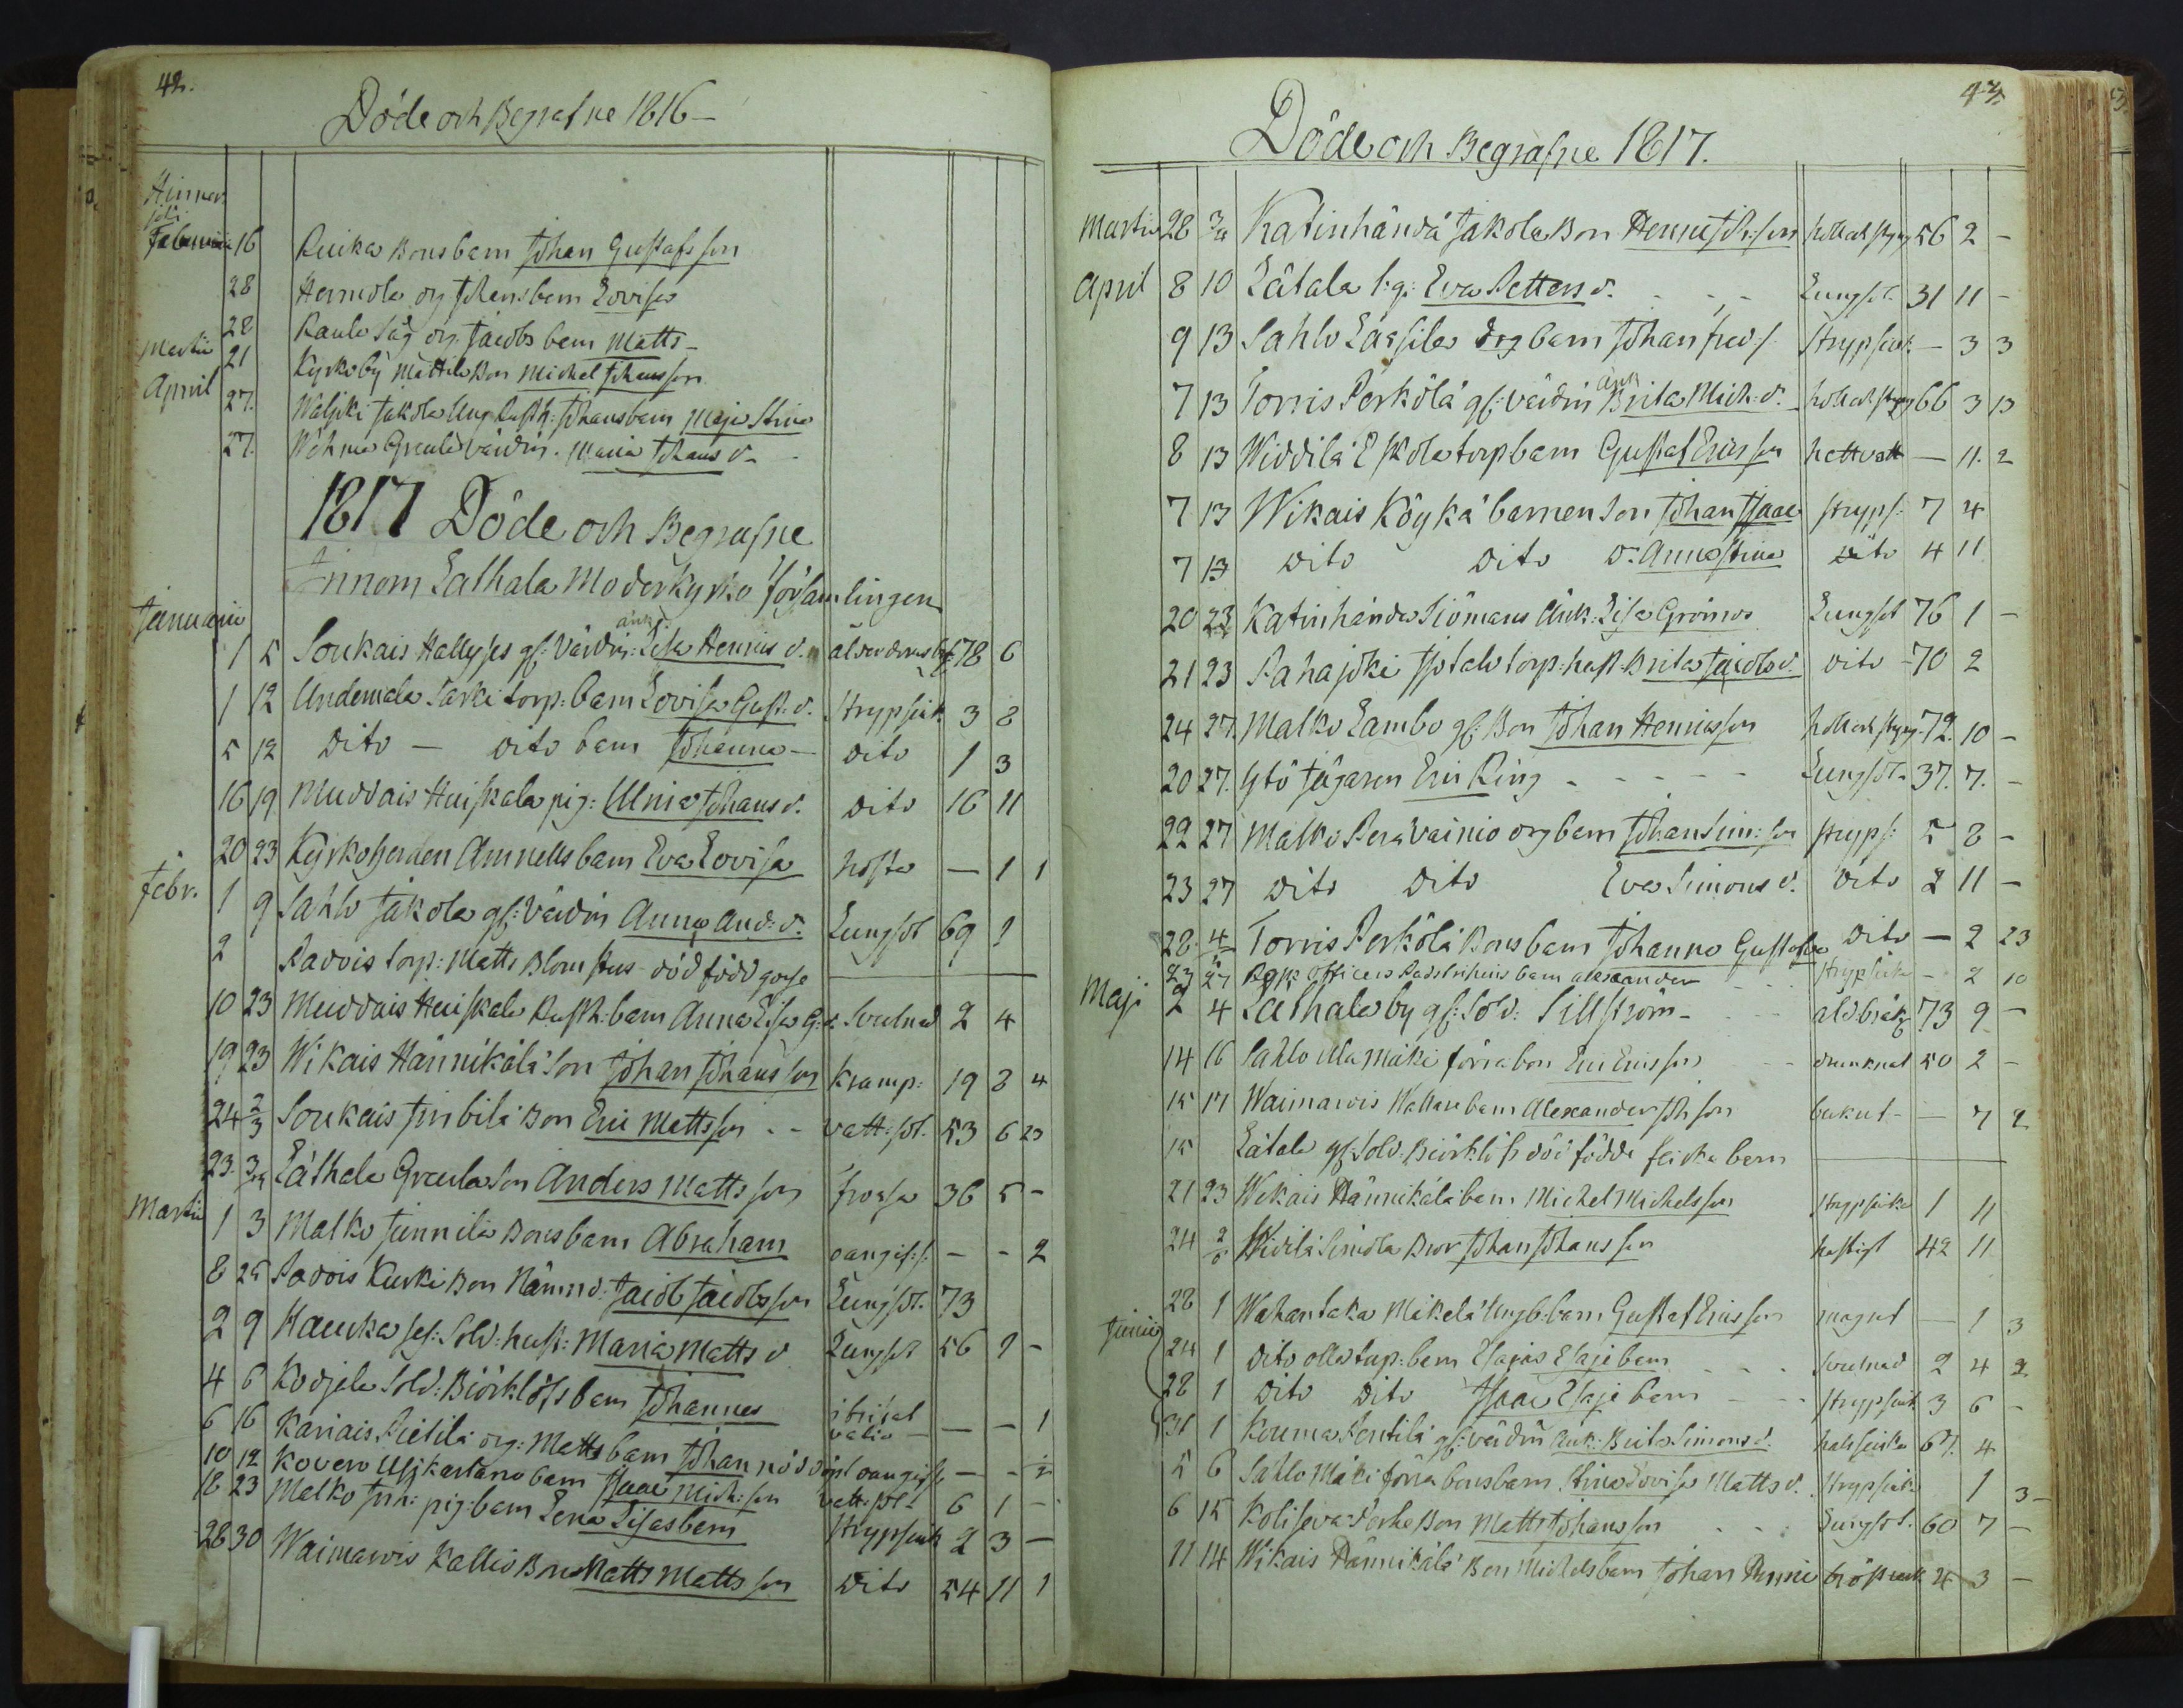 42.
Döde och Begrafne 1816 –
Hinner
joki
Februari 16 Ruika Bonsbarn Johan Gustafsson
28 Hermola Johans barn Lovisa
28 Raulo Jacobs barn Matts –
Martii 21 Kyrkoby Mattila Bon Michel Johansson
April 27. Waljki Jakola Johansbarn Maja Stina
27. Greula värdin. Maria Johans d. –
1817 Döde och Begrafne
Innom Lathala Moderkyrko församlingen
Januarii
1 5 Soukais Hallyses gl: Värdin: änk: Lisa Henrics d. ålderdoms 78 6
1 12 Undemala Sarki torp: barn Lovisa Gust. d. Strypsiuk 3 8
5 12 dito – dito barn Johanna – dito 1 3
16 19 Muddais Huiskala pig: Ulrica Johans d. dito 16 11
20 23 Kyrkoherden Amnells barn Eva Lovisa hosta – 1 1
Febr. 1 9 Sahlo Jakola gl: värdin Anna And: d. Lungsot 69 1
2 Padois torp: Matts Blomsters död född gosse
10 23 Muddais Huiskala Rusth: barn Anna Lisa G: d. Svulnad 2 4
19 23 Wikais Hännikälä Son Johan Johansson Kramp: 19 8 4
24 2/3 Soukais Simbilä Bon Eric Mattsson – – vatt: sot. 53 6 23
23. 3/3 Läthala Greula Son Anders Mattsson frossa 36 5 –
Martii 1 3 Malko Junnila Bonsbarn Abraham oangif: s. – – 2
8 25 Padois Kurki Bon Nämnd: Jacob Jacobsson Lungsot. 73
2 9 Hauka ses: Sold: hust: Maria Matts d Lungsot 56 9 –
4 6 Kodjala Sold: Biörklöfs barn Johannes – – 1
6 16 Kariais Pietilä drg: Matts barn Johan nöd döpt oangifs – – 1/2
10 12 Kovero Ulikartano barn Isaac Mich: son vatt: sot 6 1 –
18 23 Malko Inh: pig: barn Lena Lisasbarn Strypsiuk 2 3 –
28 30 Waimarois Kallio Bon Matts Mattsson dito 54 11 1
43.
Döde och Begrafne 1817.
Martii 28 3/4 Katinhändä Jakola Bon Henric Joh: son håll och styng 56 2 –
April 8 10 Lätala I: g: Eva Petters d. – – – Lungsot. 31 11 –
9 13 Sahlo Lassila drg barn Johan Fred: s. Strypsiuk. – 3 3
7 13 Torris Perkölä gl: värdin änk Brita Mich: d. håll och styng 66 3 13
8 13 Widdilä Eskola torpbarn Gustaf Ericsson hettvatt – 11. 2
7 13 Wikais Köykä barnen Son Johan Isaac stryps: 7 4
7 13 dito dito D: Anna Stina dito 4 11
20 23 Katinhända Siömans Änk: Lisa Grönroos Lungsot 76 1 –
21 23 Pahajoki Isotalo torp: hust. Brita Jacobs d. dito – 70 2
24 27. Malko Lambo gl: Bon Johan Henricsson håll och styng. 72. 10 –
20 27. Ytö Jägaren Eric Ring – – – – – Lungsot 37. 7. –
22 27 Malko Peräväinio drg barn Johan Sim: son stryps: 5 8 –
23 27 dito dito Eva Simons d. dito 2 11 –
28. 4/5 Torris Perkölä Bonsbarn Johanna Gustafs dito – 2 23
23 27 officers barn Alexander – – – Strypsiuka – 2 10
Maji 2 4 Lathala by gl: Sold: Sillström – – – åld bräk 73 9 –
14 16 Sahlo Ulamäki förra bon Eric Ericsson – – drunknat 50 2 –
15 17 Waimarois Wallare barn Alexander Joh son – 7 2
15 Lätala gl: Sold: Biörklöfs död födde flicka barn
21 23 Wikais Hännikälä barn Michel Michelsson Strypsiuka 1 11
24 2/6 Widilä Simola Bror Johan Johansson hastigt 42 11
Junii
28 1 Wahantaka Mikelä Ungb. barn Gustaf Ericsson magsot – 1 3
24 1 dito olla torp: barn Esaias Esaje barn – – – Svulnad 2 4 2
28 1 dito dito Isaac Esaje barn – – Strypsiuk 3 6 –
31 1 Korema Pentilä gl: värdin änk: Brita Simons d. halssiuka 67. 4
5 6 Sahlo Mäki förra bonsbarn Stina Lovisa Matts d. Strypsiuk 1 3 –
6 15 Koliseva Jerko Bon Matts Johansson – – – Lungsot. 60 7 –
11 14 Wikais Hännikälä Bon Michels barn Johan Henric bröstvärk 4 3 –